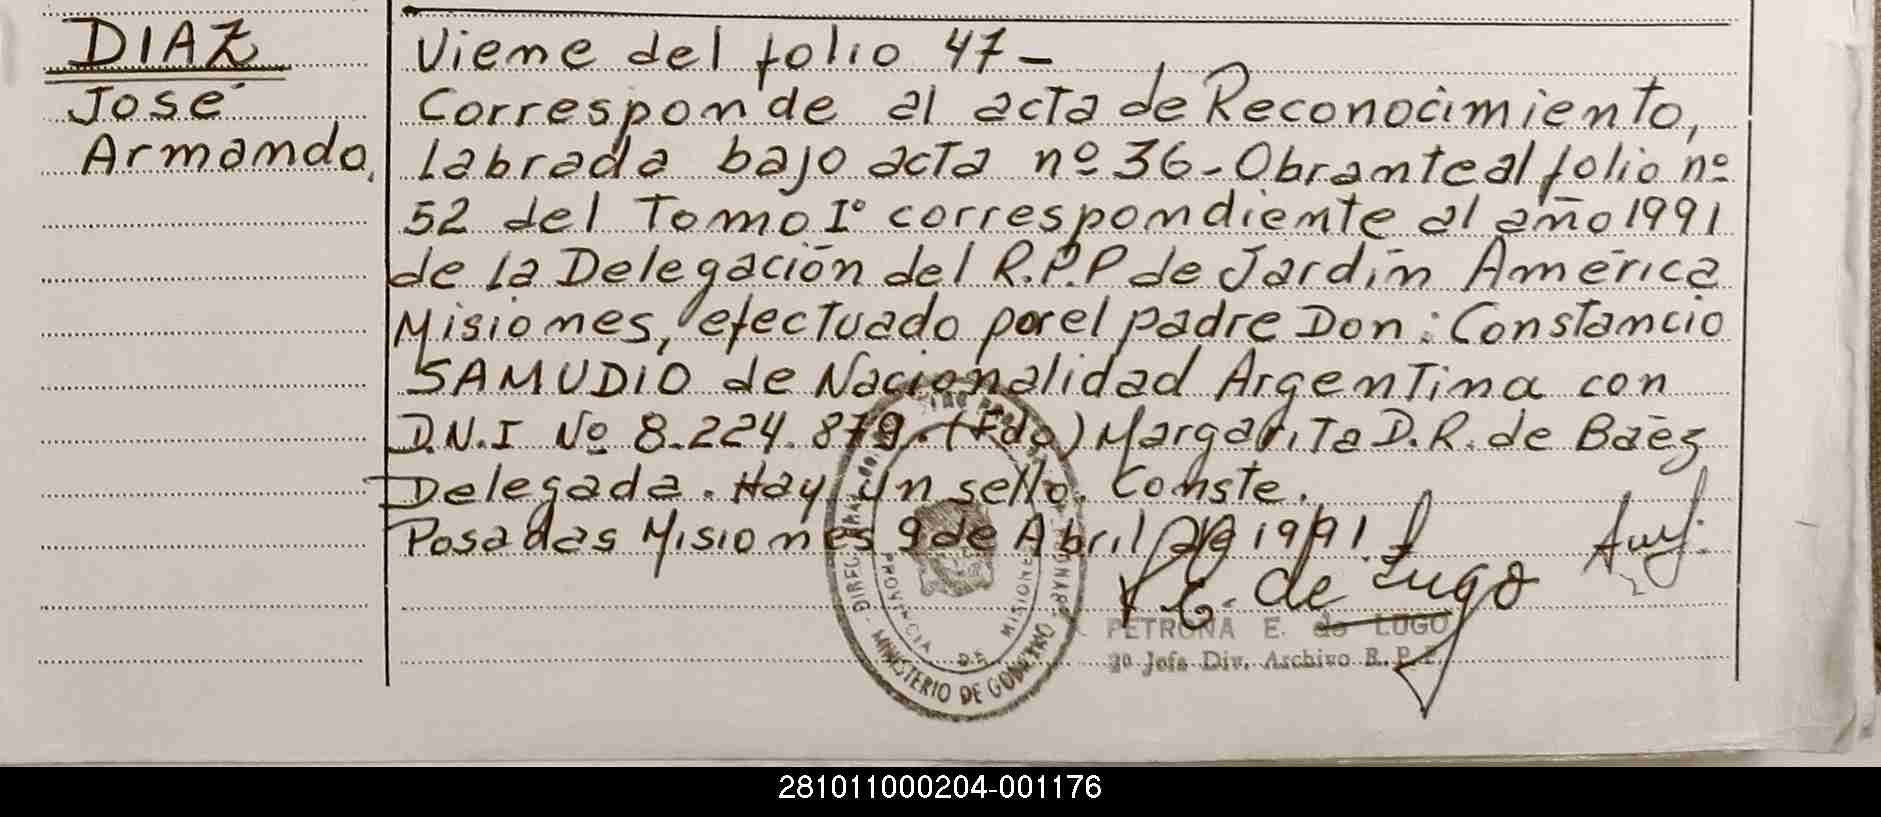 DIAZ
José
Armando,
Viene del folio 47-
Corresponde al acta de Reconocimiento,
labrada bajo acta nº 36-Obrante al folio nº
52 del Tomo Iº correspondiente al año 1991
de la Delegación del R.P.P de Jardín América
Misiones, efectuado por el padre Don: Constancio
SAMUDIO de Nacionalidad Argentina con
D.N.I Nº 8.224.879. (Fdo) Margarita D.R. de Baéz
Delegada. Hay un sello. Conste.
Posadas Misiones 9 de Abril de 1991.
P E. de Lugo
PETRONA E. de LUGO
2º Jefe Div. Archivo R. P. P.
PROVINCIA DE MISIONES
MINISTERIO DE GOBIERNO
281011000204-001176